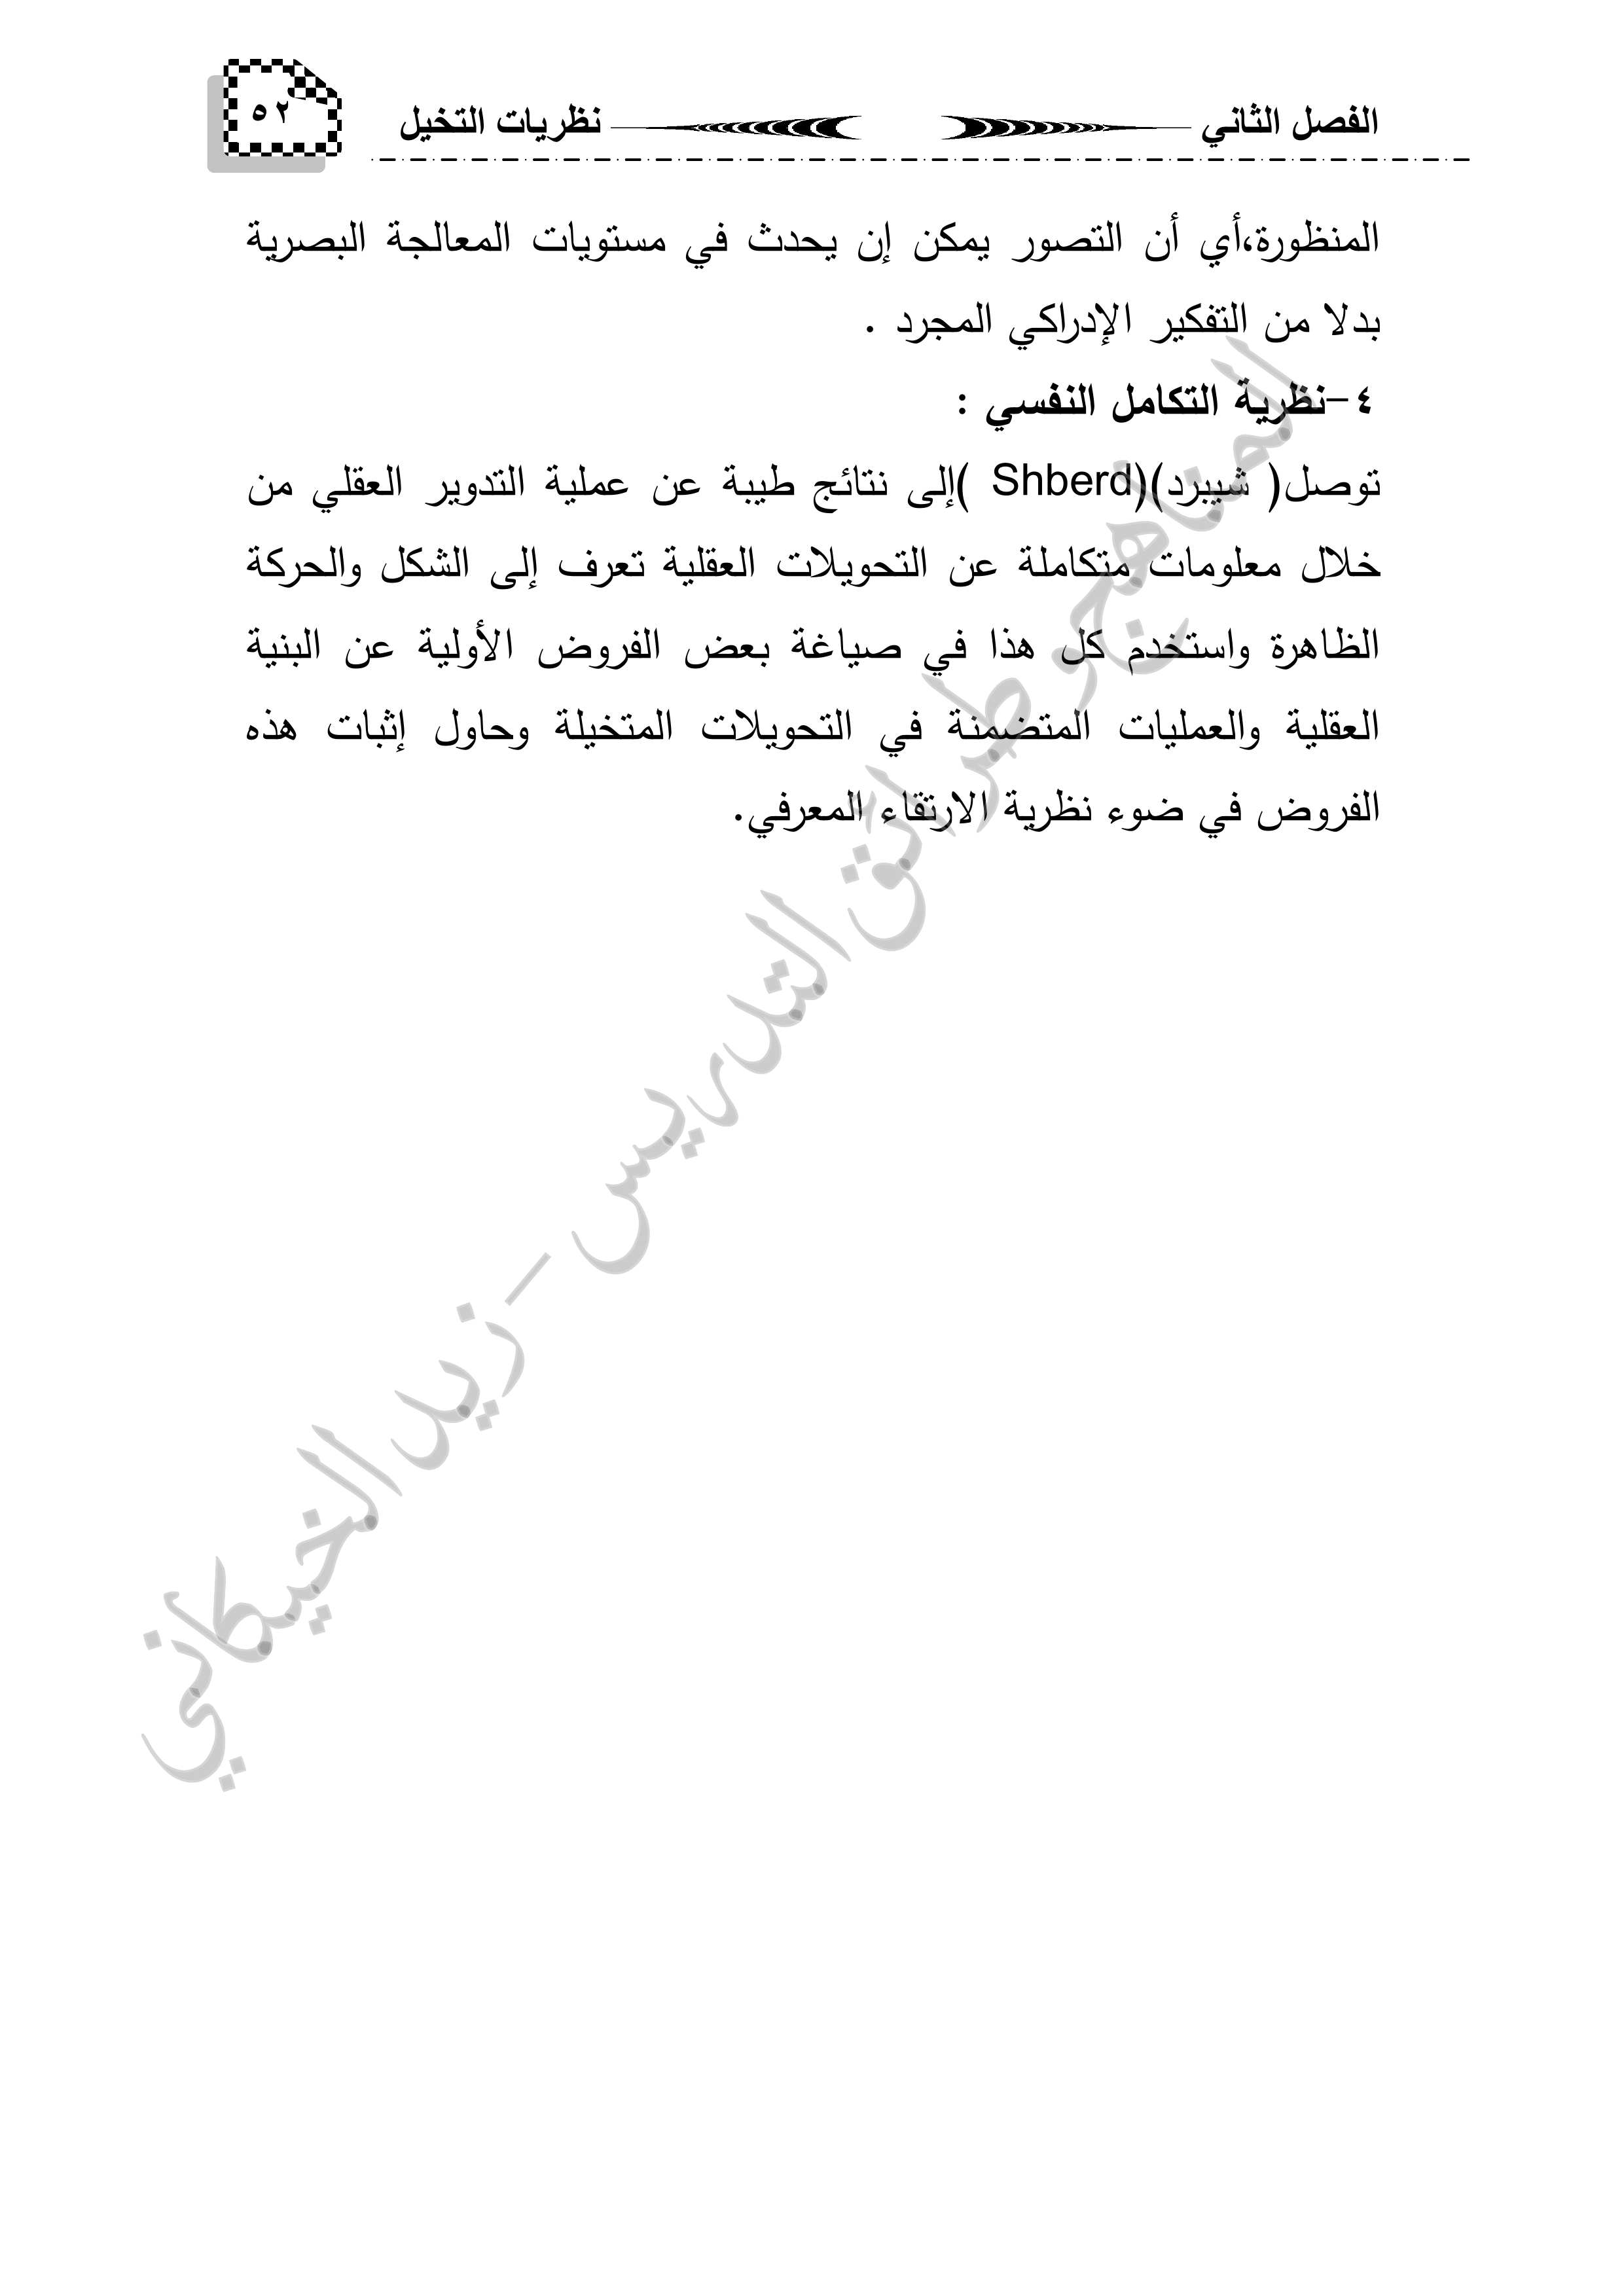 الفصل الثاني نظريات التخيل ٥٢
المنظورة،أي أن التصور يمكن إن يحدث في مستويات المعالجة البصرية
بدلا من التفكير الإدراكي المجرد .
٤-نظرية التكامل النفسي :
توصل( شيبرد)(Shberd )إلى نتائج طيبة عن عملية التدوير العقلي من
خلال معلومات متكاملة عن التحويلات العقلية تعرف إلى الشكل والحركة
الظاهرة واستخدم كل هذا في صياغة بعض الفروض الأولية عن البنية
العقلية والعمليات المتضمنة في التحويلات المتخيلة وحاول إثبات هذه
الفروض في ضوء نظرية الارتقاء المعرفي.
المناهج وطرائق التدريس - زيد الخيكاني